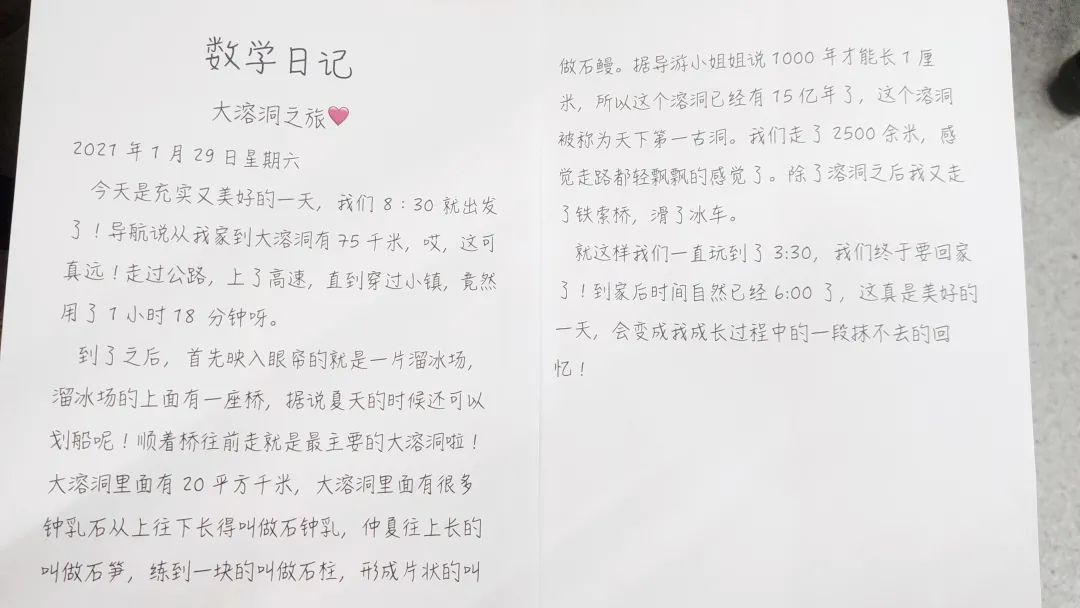 数学日记
大溶洞之旅
2021年1月29日星期六
今天是充实又美好的一天，我们8:30就出发
了！导航说从我家到大溶洞有75千米，哎，这可
真远！走过公路，上了高速，直到穿过小镇，竟然
用了1小时18分钟呀。
到了之后，首先映入眼帘的就是一片溜冰场，
溜冰场的上面有一座桥，据说夏天的时候还可以
划船呢！顺着桥往前走就是最主要的大溶洞啦！
大溶洞里面有20平方千米，大溶洞里面有很多
钟乳石从上往下长得叫做石钟乳，仲夏往上长的
叫做石笋，练到一块的叫做石柱，形成片状的叫
做石鳗。据导游小姐姐说1000年才能长1厘
米，所以这个溶洞已经有15亿年了，这个溶洞
被称为天下第一古洞。我们走了2500余米，感
觉走路都轻飘飘的感觉了。除了溶洞之后我又走
了铁索桥，滑了冰车。
就这样我们一直玩到了3:30，我们终于要回家
了！到家后时间自然已经6:00了，这真是美好的
一天，会变成我成长过程中的一段抹不去的回
忆！